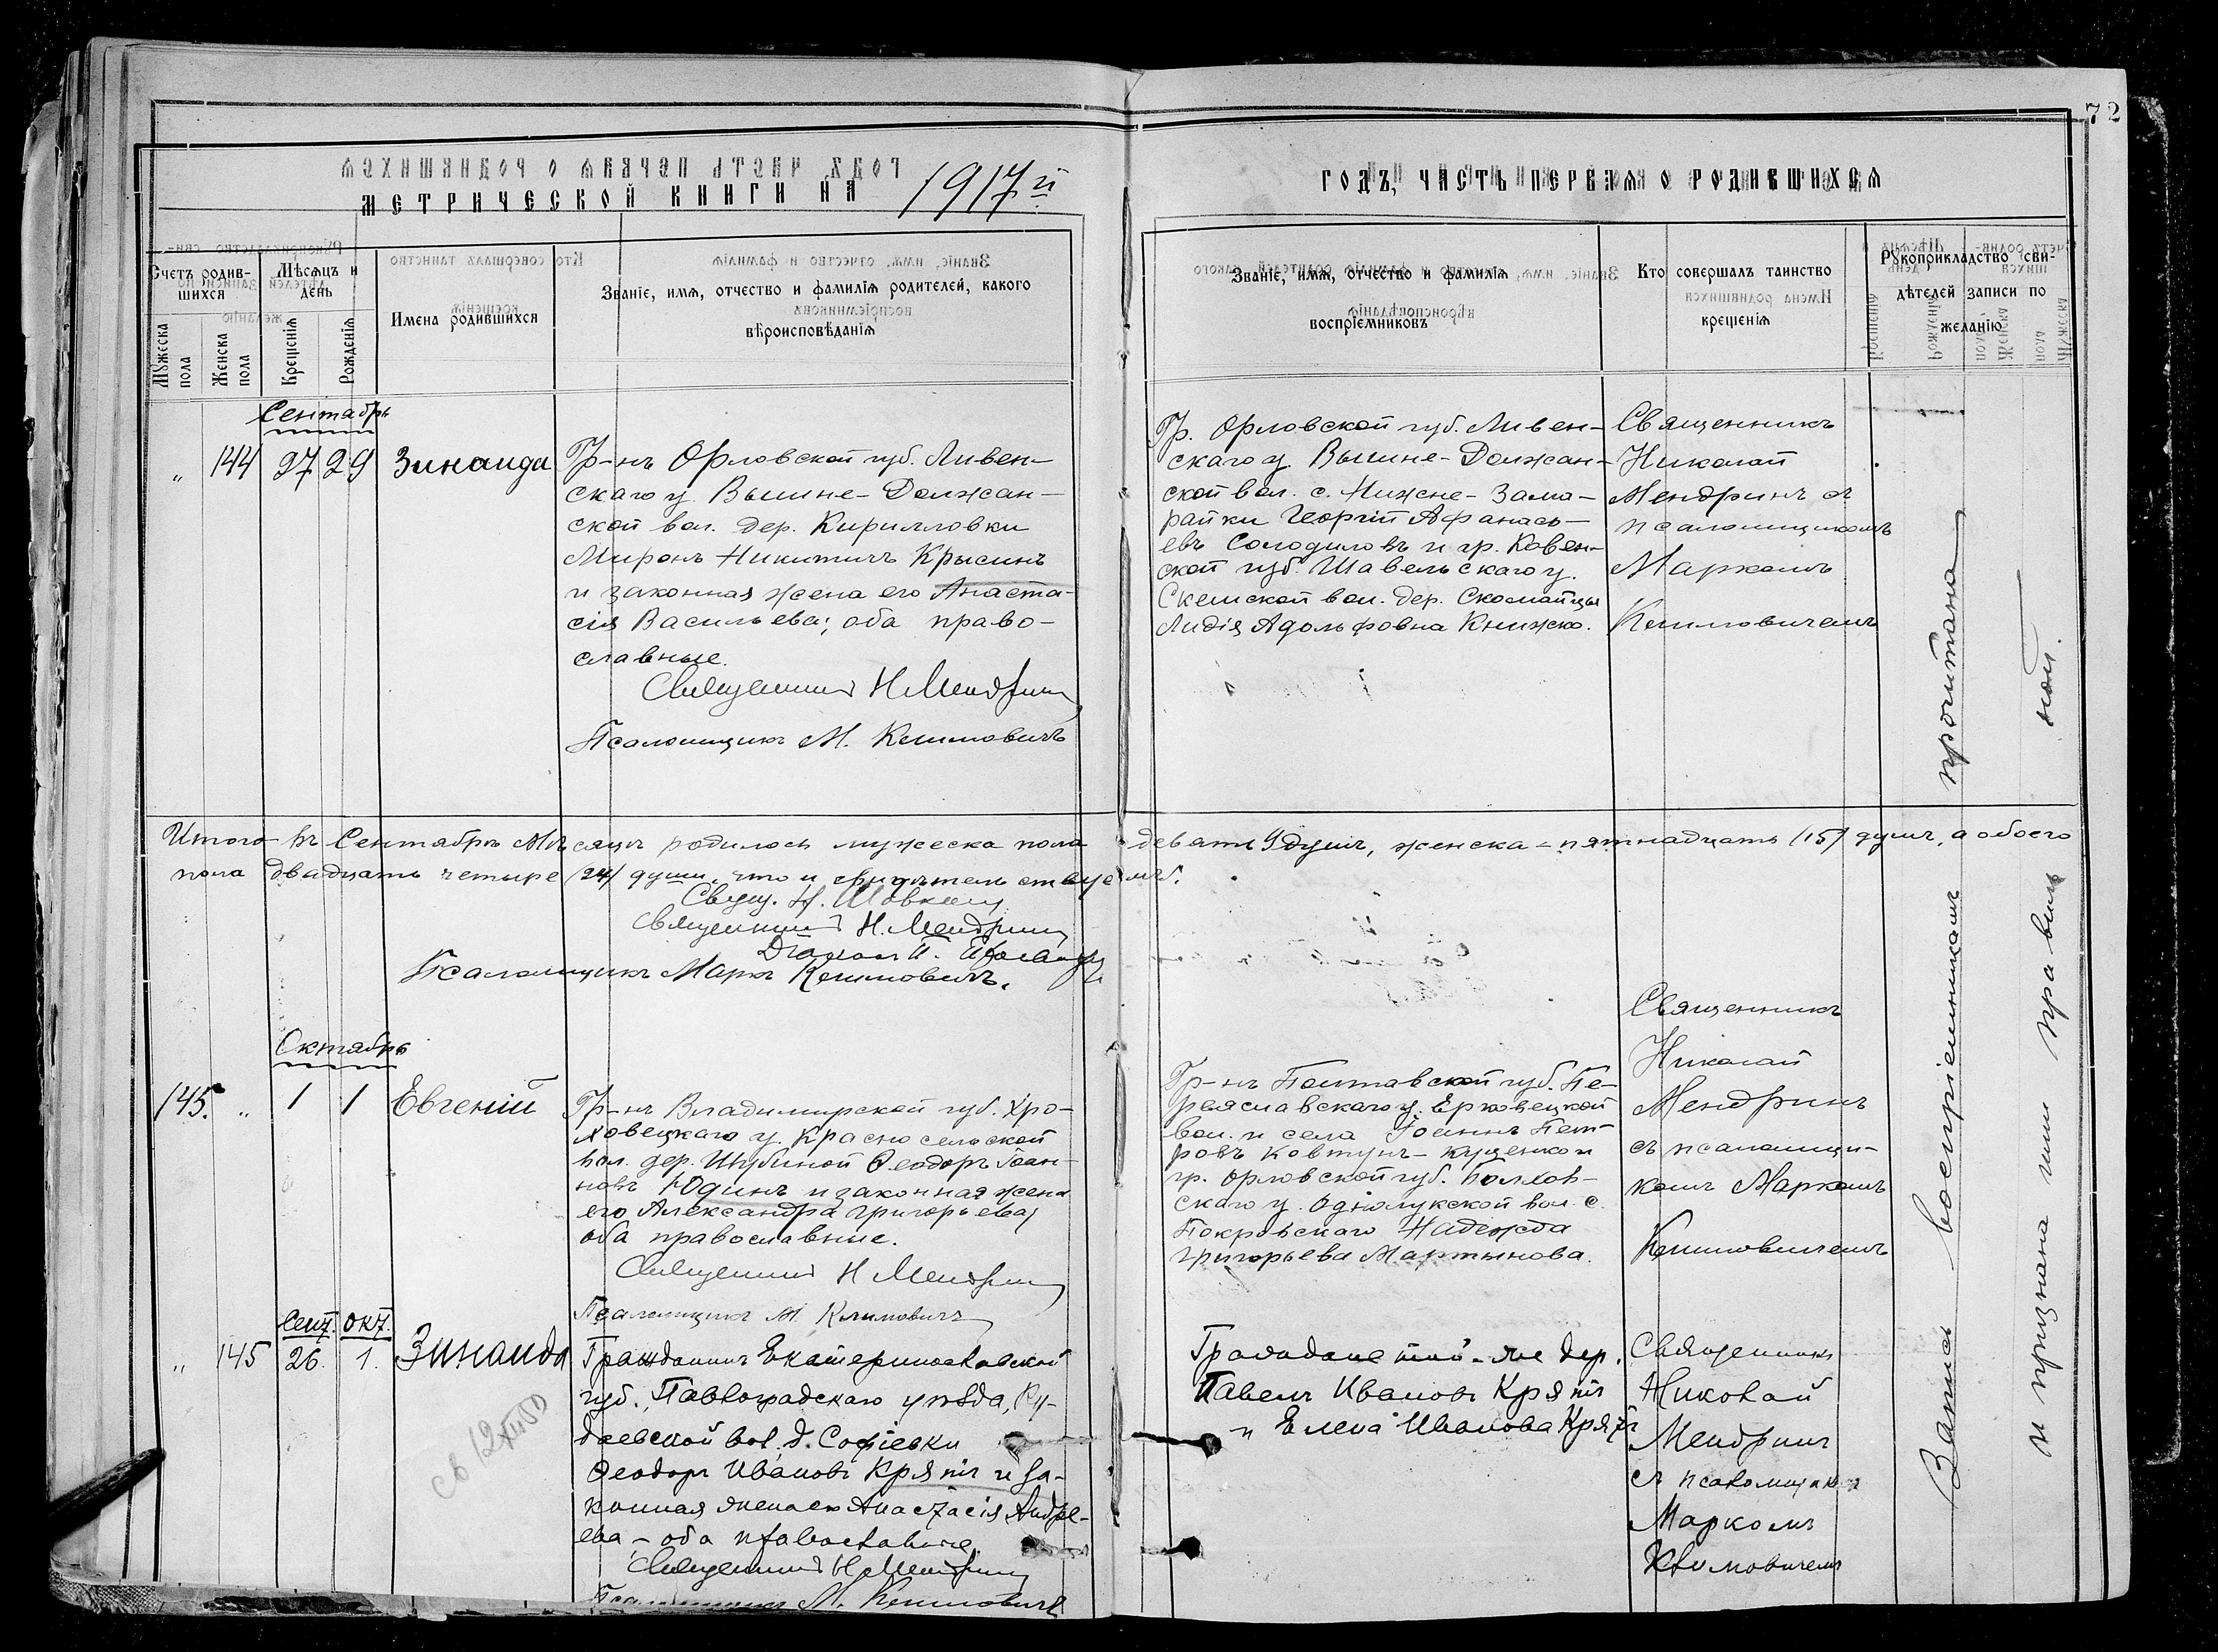 72
МЕТРИЧЕСКОЙ КНИГИ НА 1917й
ГОДЪ, ЧАСТЬ ПЕРВАЯ О РОДИВШИХСЯ
Счетъ родив-
шихся
Мѣсяцъ и
день
Мужеска
пола
Женска
пола
Крещенія
Рожденія
Имена родившихся
Званіе, имя, отчество и фамилія родителей, какого
вѣроисповѣданія
Званіе, имя, отчество и фамилія
воспріемниковъ
Кто совершалъ таинство
крещенія
Рукоприкладство сви-
дѣтелей записи по
желанію
Сентябрь
„ 144 27 29 Зинаида
Гр-нъ Орловской губ. Ливен-
скаго у. Вышне-Должан-
ской вол. дер. Кирилловки
Миронъ Никитичъ Крысинъ
и законная жена его Анаста-
сія Васильева; оба право-
славные.
Священникъ Н Мендринъ
Псаломщикъ М. Климовичъ
Гр. Орловской губ. Ливен-
скаго у. Вышне-Должан-
ской вол. с. Нижне-
Георгій Афанась-
евъ Солодиловъ и гр. Ковен-
ской губ. Шавельскаго у.
вол. дер.
Лидія Адольфовна Книжко.
Священникъ
Николай
Мендринъ съ
псаломщикомъ
Маркомъ
Климовичемъ
Итого въ Сентябрѣ Мѣсяцѣ родилось мужеска пола девять 9 душъ, женска - пятнадцать (15) душъ, а обоего
пола двадцать четыре (24) души, что и свидѣтельствуемъ.
Свящ. Н.
Священникъ Н. Мендринъ
Діаконъ
Псаломщикъ Маркъ Климовичъ.
Октябрь
145. „ 1 1 Евгеній
Гр-нъ Владимирской губ. Хро-
ховецкаго у. Красносельской
вол. дер. Шубиной Ѳеодоръ Іоан-
новъ Юдинъ и законная жена
его Александра Григорьева;
оба православные.
Священникъ Н Мендринъ
Псаломщикъ М. Климовичъ
Гр-нъ Полтавской губ. Пе-
реяславскаго у. Ерковецкой
вол. и села Іоаннъ Пет-
ровъ Ковтунъ-Куценко и
гр. Орловской губ. Болхов-
скаго у. Однолукской вол. с.
Покровскаго Надежда
Григорьева Мартынова.
Священникъ
Николай
Мендринъ
съ псаломщи-
комъ Маркомъ
Климовичемъ
Сент. Окт.
„ 145 26. 1. Зинаида
Гражданинъ Екатеринославской
губ., Павлоградскаго уѣзда,
вол. д. Софіевки
Ѳеодоръ Ивановъ и за-
конная жена его Анастасія Андре-
ева, - оба православные.
Священникъ Н Мендринъ
Псаломщикъ М. Климовичъ
Граждане той-же дер.
Павелъ Ивановъ
и Елена Иванова
Священникъ
Николай
Мендринъ
съ псаломщикомъ
Маркомъ
Климовичемъ
св 12 XII 50
Запись воспріемникамъ прочитана
и признана ими правиль
ной.